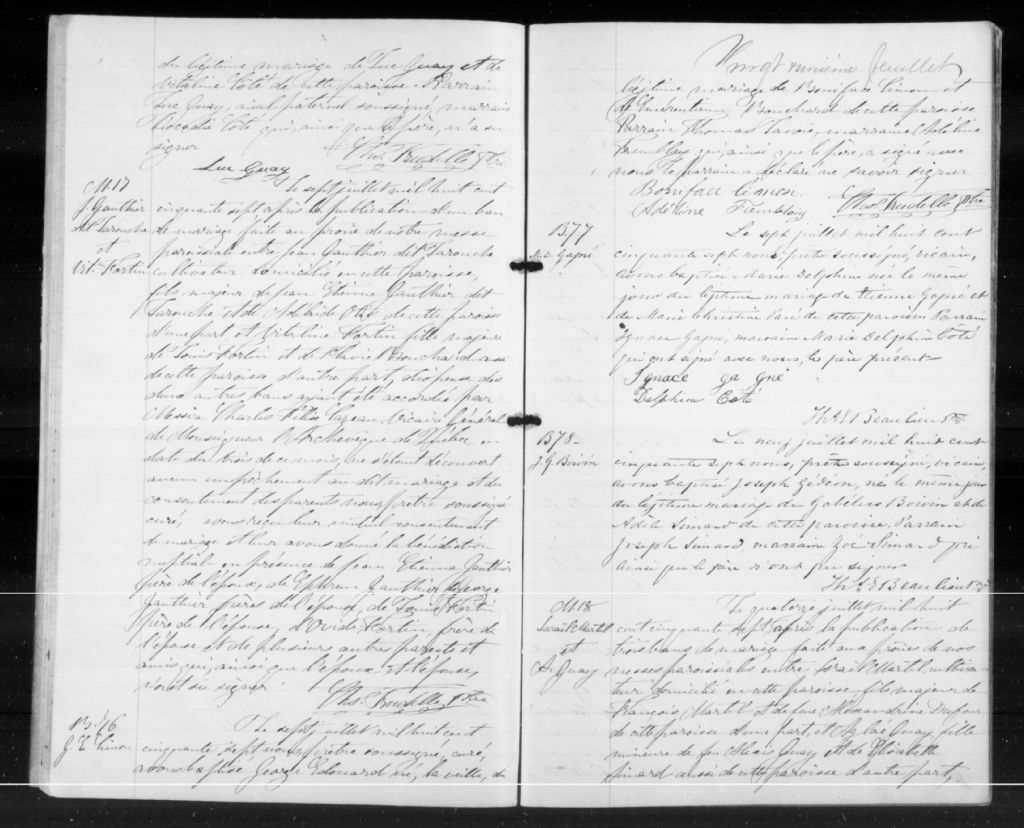 du légitime mariage de Luc Guay et de
Vitaline Coté de cette paroisse. Parrain
Luc Guay, aïeul paternel soussigné, marraine
Leocadie Coté qui, ainsi que le père, n'a su
signer
Ths. Trudelle Ptre
Luc Guay
M.17
J. Gauthier
dit Larouche
et
Vit. Fortin
Le sept juillet mil huit cent
cinquante sept après la publication d'un ban
de mariage faite au prone de notre messe
paroissiale entre Jean Gauthier dit Larouche
cultivateur domicilié en cette paroisse,
fils majeur de Jean Etienne Gauthier dit
Larouche et de Adelaide Otis de cette paroisse
d'une part et Vitaline Fortin fille majeure
de Louis Fortin et de Bouchard aussi
de cette paroisse d'autre part, dispense des
deux autres bans ayant été accordée par
Messire Charles Félix Cazeau, Vicaire Général
de Monseigneur l'Archevêque de Québec en
date du trois de ce mois, ne s'étant découvert
aucun empêchement au dit mariage et du
consentement des parents, nous prêtre soussigné
curé, avons reçu leur mutuel consentement
de mariage et leur avons donné la bénédiction
nuptiale en présence de Jean Etienne Gauthier
père de l'époux, de Ephrem Gauthier, George
Gauthier frères de l'époux, de Louis Fortin
père de l'épouse, d'Ovide Fortin, frère de
l'épouse et de plusieurs autres parents et
amis qui, ainsi que l'époux et l'épouse,
n'ont su signer.
Ths. Trudelle Ptre
B.76
J. E. Simon
Le sept juillet mil huit cent
cinquante sept nous prêtre soussigné, curé,
avons baptisé George Edouard né, la veille, du
Vingt unième feuillet
légitime mariage de Boniface Simon et
de Emerentienne Bouchard de cette paroisse
Parrain Thomas Savoie, marraine Adéline
Tremblay qui, ainsi que le père, a signé avec
nous le parrain a déclaré ne savoir signer
Boniface Simon
Adéline Tremblay Ths. Trudelle Ptre
B77
M. D. Gagné
Le sept juillet mil huit cent
cinquante sept nous, prêtre soussigné, vicaire,
avons baptisé Marie Delphine née le même
jour du légitime mariage de Etienne Gagné et
de Marie Christine Paré de cette paroisse Parrain
Ignace Gagné, marraine Marie Delphine Coté
qui ont signé avec nous, le père présent
Ignace gagné
Delphine Coté
Ths E Beaulieu Ptre
B78
J. G. Boivin
Le neuf juillet mil huit cent
cinquante sept nous, prêtre soussigné, vicaire,
avons baptisé Joseph Gédéon, né le même jour
du légitime mariage de Boivin et de
Adèle Simard de cette paroisse. Parrain
Joseph Simard, marraine Zoé Simard qui
ainsi que le père n'ont pu signer
Ths E Beaulieu Ptre
M.18
Israïl Martel
et
A. Guay
Le quatorze juillet mil huit
cent cinquante sept, après la publication de
trois bans de mariage faite aux prônes de nos
messes paroissiales entre Israïl Martel cultiva-
teur domicilié en cette paroisse, fils majeur de
François Martel et de feue Alexandrine Dufour
de cette paroisse d'une part, et Guay, fille
mineure de feu Guay et de Elisabeth
Simard aussi de cette paroisse d'autre part,